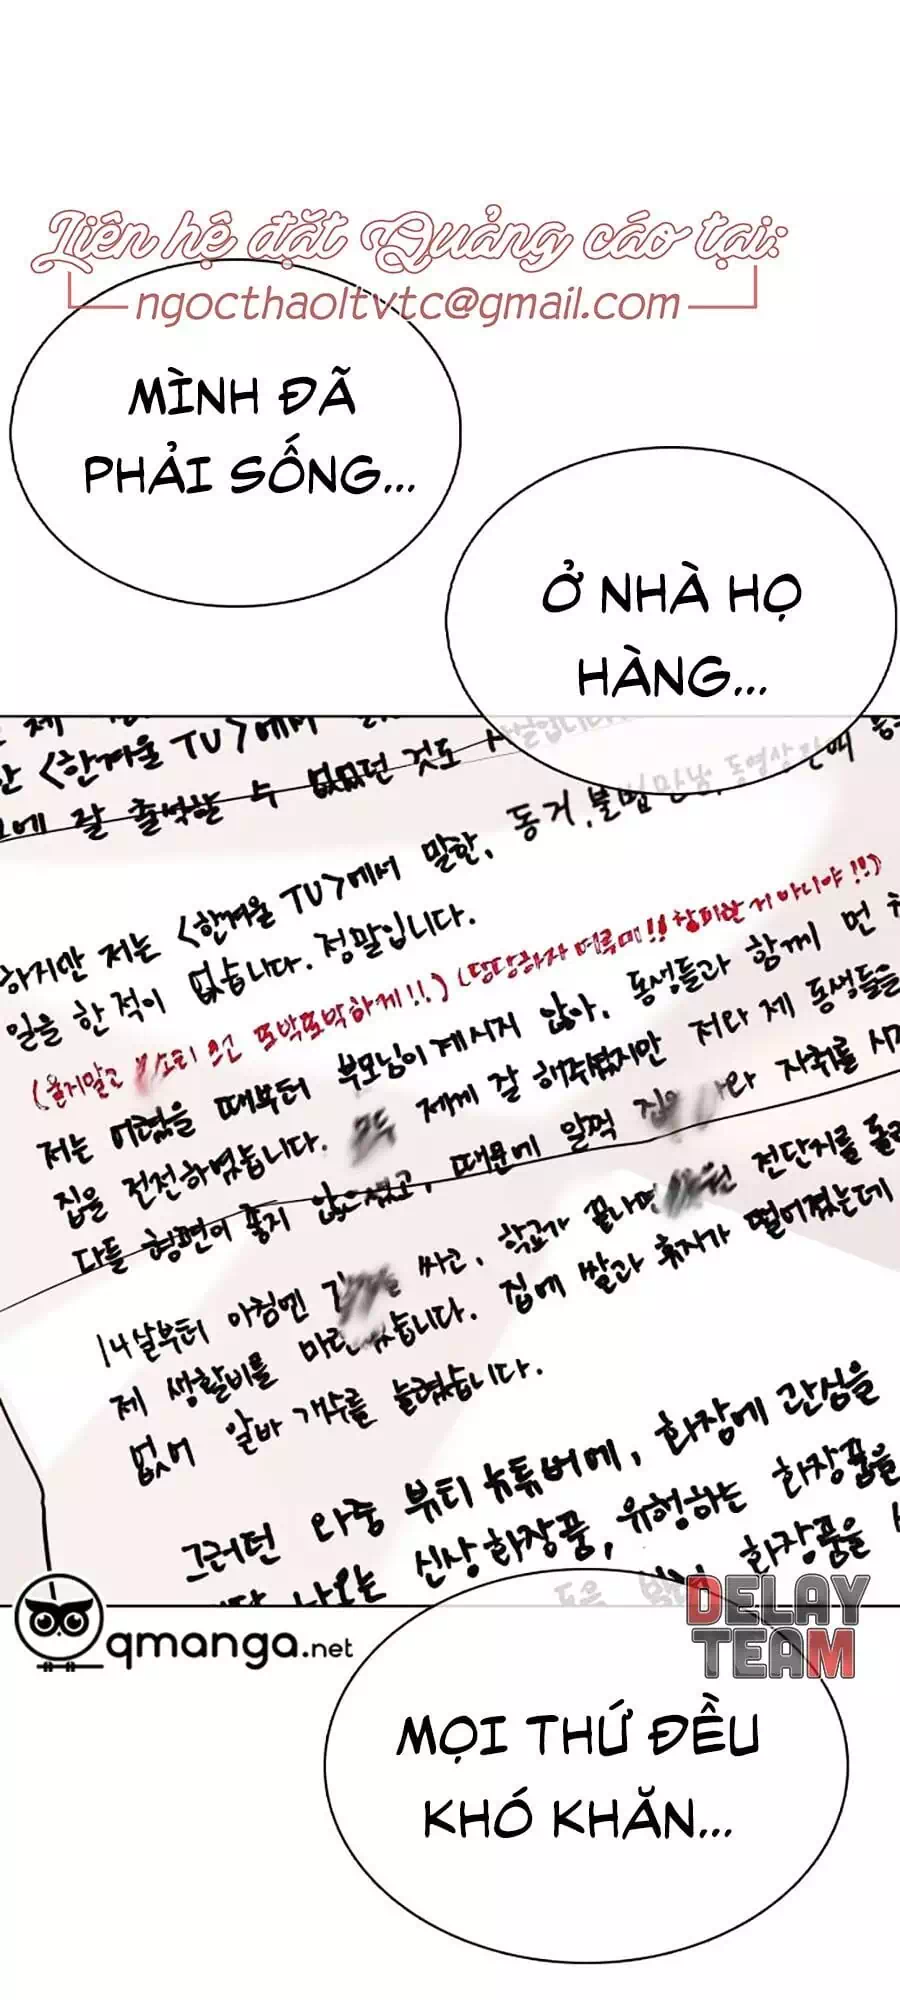 Liên hệ đặt Quảng cáo tại:
ngocthaoltvtc@gmail.com
MÌNH ĐÃ
PHẢI SỐNG...
Ở NHÀ HỌ
HÀNG...
<한겨울 TV>에서
잘 출석할 수 없었던 것도
하지만 저는 <한겨울 TV>에서 말한, 동거, 불법만남, 동영상
일을 한 적이 없습니다. 정말입니다.
(울지말고 또박또박하게!!) (당당하자 창피한 게 아니야!!)
저는 어렸을 때부터 부모님이 계시지 않아, 동생들과 함께 먼
집을 전전하였습니다. 모두 제게 잘 해주셨지만 저와 제 동생들을
다들 형편이 좋지 않으셨고, 때문에 일찍 자취를
14살부터 아침엔 싸고, 학교가 끝나면 전단지를
제 생활비를 마련했습니다. 집에 쌀과 휴지가 떨어졌는데
없어 알바 개수를 늘렸습니다.
그러던 와중 뷰티 뉴튜버에, 화장에 관심을
나오는 신상화장품, 유행하는 화장품을
화장품을
qmanga.net
DELAY
TEAM
MỌI THỨ ĐỀU
KHÓ KHĂN...